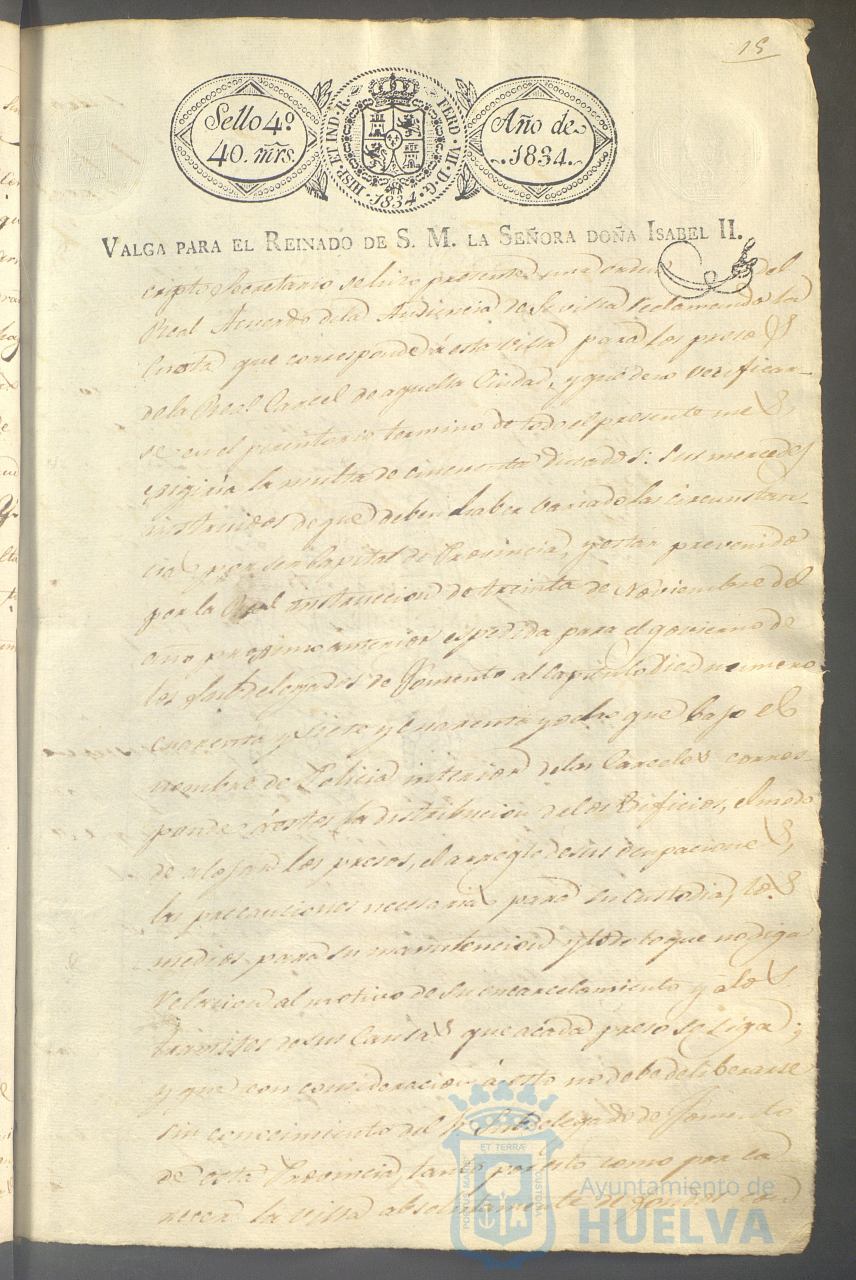 15
Sello 4.º
40. mrs.
HISP. ET IND. R. FERD. VII. D. G.
1834
Año de
1834.
VALGA PARA EL REINADO DE S. M. LA SEÑORA DOÑA ISABEL II.
cripto Secretario se hizo presente una orden del
Real Acuerdo de la Audiencia de Sevilla reclamando la
Cuota que corresponde á esta Villa para los presos
de la Real Carcel de aquella Ciudad, y que de no verificar-
se en el perentorio termino de todo el presente mes,
exigiria la multa de cincuenta ducados: Sus mercedes
instruidos de que deben haber variado las circunstan-
cias por ser Capital de Provincia, y estar prevenido
por la Real instruccion de treinta de Noviembre del
año proximo anterior expedida para el govierno de
los Subdelegados de Fomento al Capitulo Diez numero
cuarenta y siete y cuarenta y ocho que bajo el
nombre de Policia interior de las Carceles corres-
ponde á estos la distribucion de los Edificios, el modo
de alojar los presos, el arreglo de sus ocupaciones,
las precauciones necesarias para su custodia, los
medios para su manutencion y todo lo que no diga
relacion al motivo de su encarcelamiento y a los
tramites de sus Causas que a cada preso se siga;
y que con consideracion á esto no debe deliberarse
sin conocimiento del Sr. Subdelegado de Fomento
de esta Provincia, tanto por esto como por ca
recer la Villa absolutamente de fondos
PORTUS MARIS
ET TERRÆ
CUSTODIA
Ayuntamiento de
HUELVA